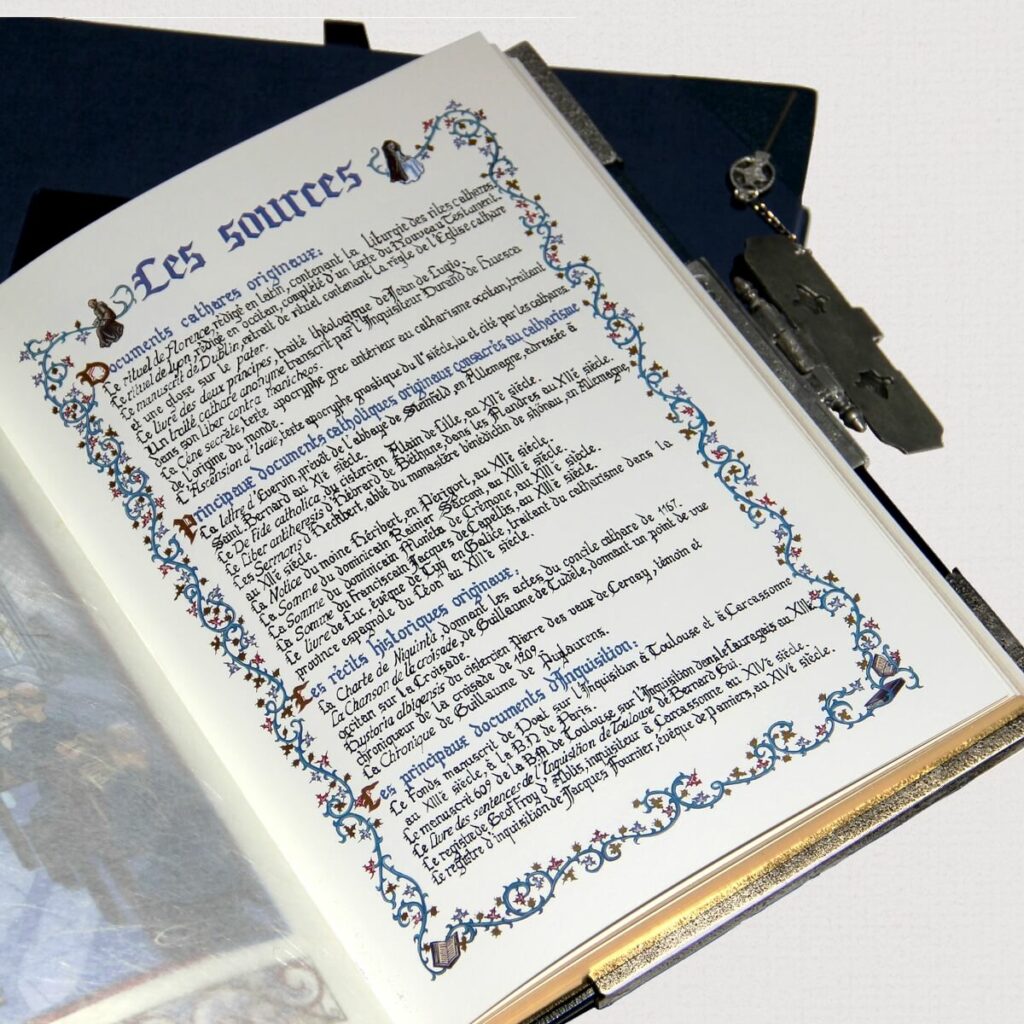 Les sources
Documents cathares originaux:
Le rituel de Florence, rédigé en latin, contenant la liturgie des rites cathares.
Le rituel de Lyon, rédigé en occitan, complété d'un texte du Nouveau Testament.
Le manuscrit de Dublin, extrait de rituel contenant la règle de l'Eglise cathare
et une glose sur le pater.
Le livre des deux principes, traité théologique de Jean de Lugio.
Un traité cathare anonyme transcrit par l'Inquisiteur Durand de Huesca
dans son liber contra manicheos.
La Cène secrète, texte apocryphe grec antérieur au catharisme occitan, traitant
de l'origine du monde.
L'Ascension d'Isaïe, texte apocryphe gnostique du IIe siècle, lu et cité par les cathares.
Principaux documents catholiques originaux consacrés au catharisme
La lettre d'Evervin, prévôt de l'abbaye de Steinfeld, en Allemagne, adressée à
Saint Bernard au XIIe siècle.
Le De Fide catholica, du cistercien Alain de Lille, au XIIe siècle.
Le Liber antiheresis d'Ebrard de Béthune, dans les Flandres au XIIe siècle.
Les Sermons d'Eckbert, abbé du monastère bénédictin de Shönau, en Allemagne,
au XIIe siècle.
La Notice du moine Héribert, en Périgort, au XIIe siècle.
La Somme du dominicain Rainier Sacconi, au XIIIe siècle.
La Somme du Franciscain Jacques de Capellis, au XIIIe siècle.
Le livre de Luc, évêque de Tuy en Galice, traitant du catharisme dans la
province espagnole du Léon au XIIIe siècle.
Les récits historiques originaux:
La Charte de Niquinta, donnant les actes du concile cathare de 1167.
La Chanson de la croisade, de Guillaume de Tudèle, donnant un point de vue
occitan sur la Croisade.
L'hystoria albigensis du cistercien Pierre des vaux de Cernay, témoin et
chroniqueur de la croisade de 1209.
La Chronique de Guillaume de Puylaurens.
Les principaux documents d'Inquisition:
Le Fonds manuscrit de Doat sur l'Inquisition à Toulouse et à Carcassonne
au XIIIe siècle, à la B.N de Paris.
Le manuscrit 609 de la B.M de Toulouse sur l'Inquisition dans le Lauragais au XIIIe
Le livre des sentences de l'Inquisition de Toulouse de Bernard Gui.
Le registre de Geoffroy d'Ablis, inquisiteur à Carcassonne au XIVe siècle.
Le registre d'inquisition de Jacques Fournier, évêque de Pamiers, au XIVe siècle.